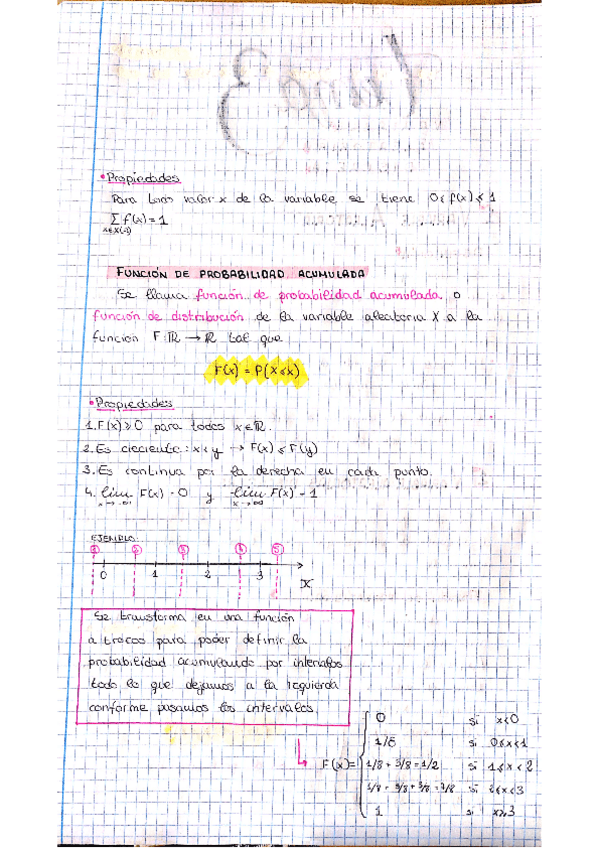 • Propiedades
Para todo valor x de la variable se tiene 0 ≤ f(x) ≤ 1
∑ f(x) = 1
x∈X(Ω)
FUNCIÓN DE PROBABILIDAD ACUMULADA
Se llama función de probabilidad acumulada o
función de distribución de la variable aleatoria X a la
función F: ℝ → ℝ tal que
F(x) = P(X ≤ x)
• Propiedades
1. F(x) ≥ 0 para todos x ∈ ℝ.
2. Es creciente: x < y → F(x) ≤ F(y)
3. Es continua por la derecha en cada punto.
4. lim F(x) = 0 y lim F(x) = 1
x→-∞ x→∞
EJEMPLO
1 2 3 4 5
0 1 2 3 X
Se transforma en una función
a trozos para poder definir la
probabilidad acumulando por intervalos
todo lo que dejamos a la izquierda
conforme pasamos los intervalos.
0 si x<0
1/8 si 0≤x<1
F(x)= 1/8 + 3/8 = 1/2 si 1≤x<2
1/8 + 3/8 + 3/8 = 7/8 si 2≤x<3
1 si x≥3